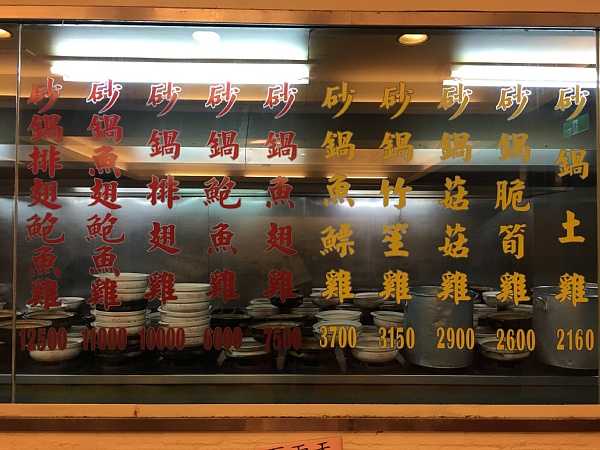 砂鍋土雞 2160
砂鍋脆筍雞 2600
砂鍋菇菇雞 2900
砂鍋竹笙雞 3150
砂鍋魚鰾雞 3700
砂鍋魚翅雞 7500
砂鍋鮑魚雞
砂鍋排翅雞 10000
砂鍋魚翅鮑魚雞 11000
砂鍋排翅鮑魚雞 12500